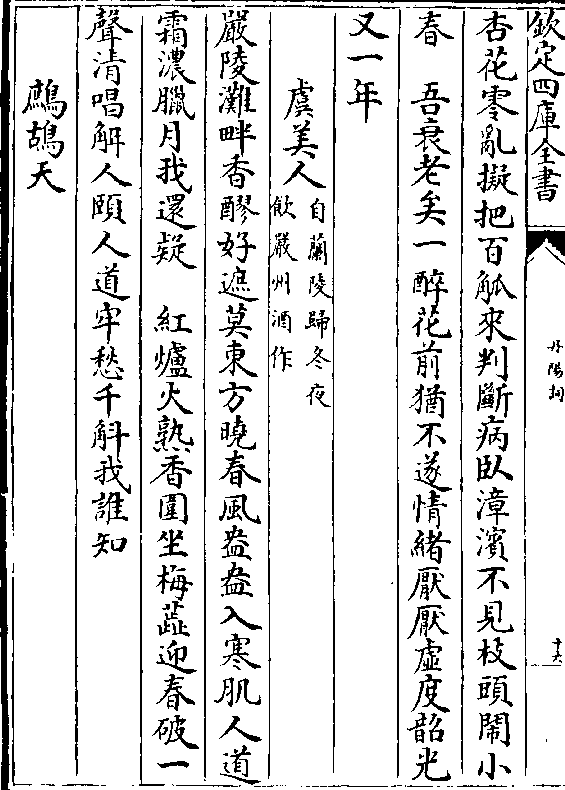 欽定四庫全書
丹陽詞
十六
杏花零亂擬把百觚來判斷病臥漳濱不見枝頭鬧小
春　吾衰老矣一醉花前猶不遂情緒厭厭虛度韶光
又一年
虞美人自蘭陵歸冬夜
飲嚴州酒作
嚴陵灘畔香醪好遮莫東方曉春風盎盎入寒肌人道
霜濃臘月我還疑　紅爐火熟香圍坐梅蕋迎春破一
聲清唱解人頤人道牢愁千斛我誰知
鷓鴣天